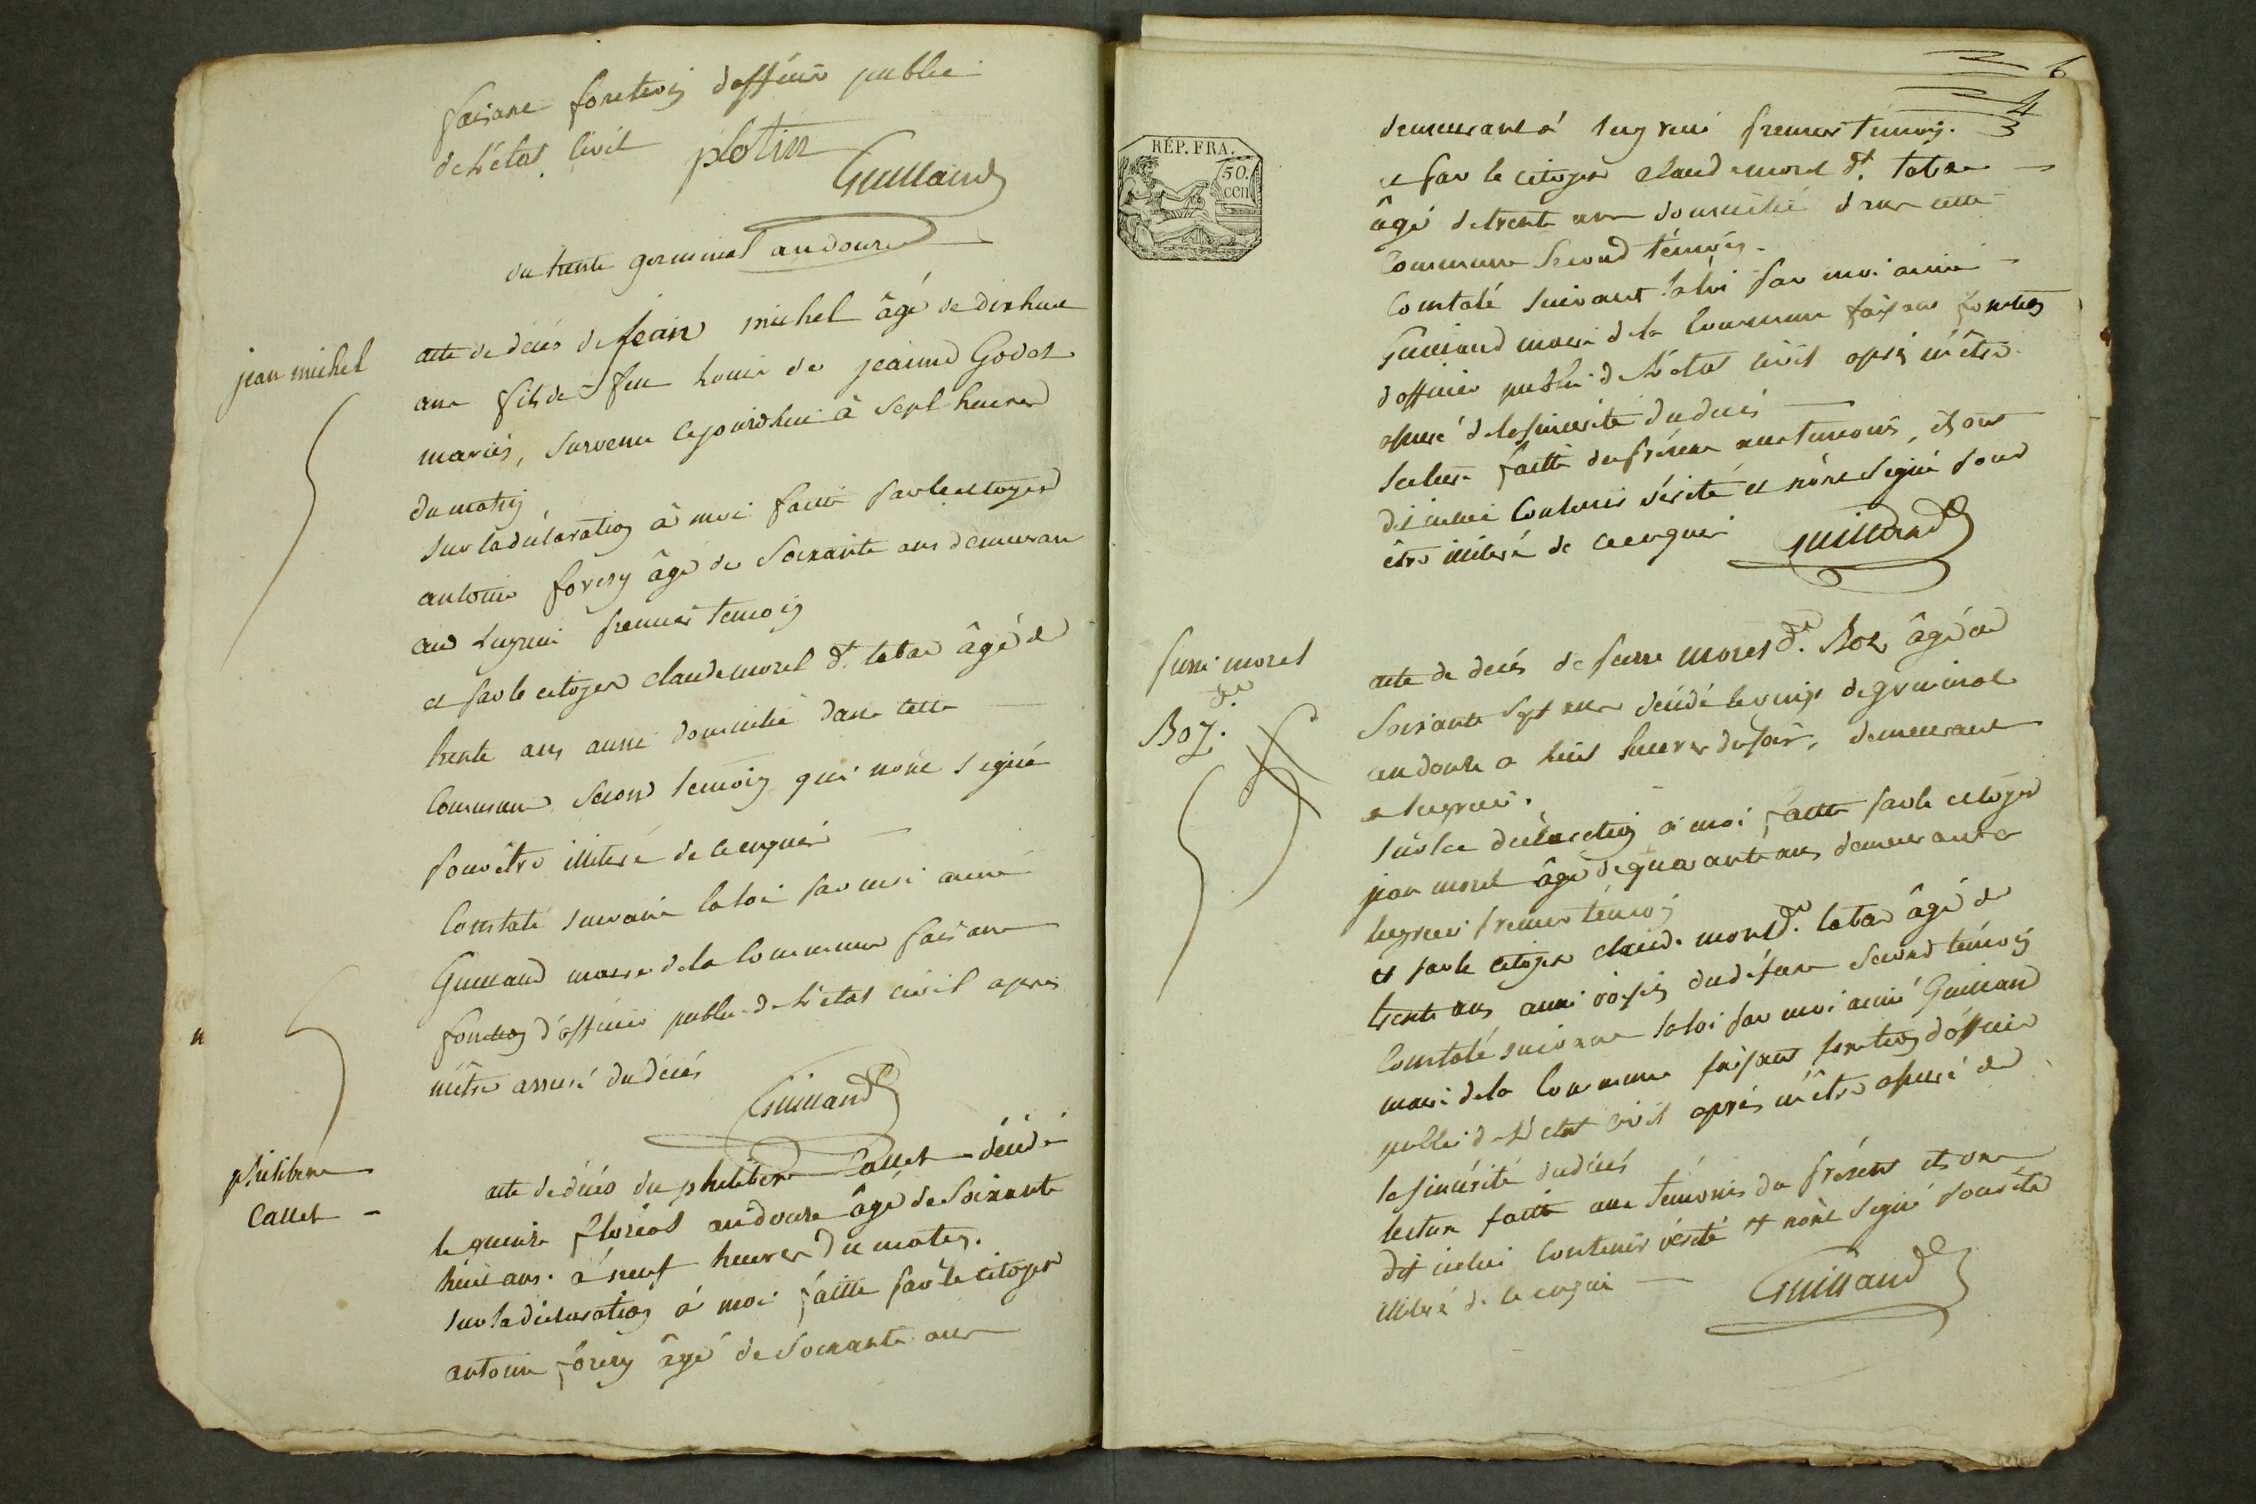 faisant fonction dofficier public
de l'état civil plotin
Guilland
du trente germinal an douze
jean michel
acte de décès de Jean michel âgé de dix huit
ans fils de feu louis de jeanne Godet
mariés, survenu cejourdhui à sept heures
du matin
sur la déclaration à moi faitte par le citoyen
antoine forey âgé de soixante ans demeurant
au premier temoin
et par le citoyen claude morel dt. tabar âgé de
trente ans aussi domicilié dans cette
commune second temoin qui nont signé
pour être illiteré de ce enquéri
Constaté suivant la loi par moi aimé
Guilland maire de la commune faisant
fonction d'officier public de l'état civil après
mêtre assuré du décès
Guilland
philibert
Callet -
acte de décés de philibert Callet décédé
le quinze floréal an douze âgé de soixante
huit ans. à neuf heures du matin.
sur la déclaration à moi faitte par le citoyen
antoine forey âgé de soixante ans
6
4
3
RÉP. FRA.
50.
cen
demeurant à premier témoin.
et par le citoyen claude morel dt. tabar
âgé de trente ans domicilié dans cette
commune second témoin.
Constaté suivant la loi par moi aimé
Guilland maire de la commune faisant fonction
d'officier public de l'état civil après m'être
assuré de la sincerité du decés
lecture faitte du présent aux temoins, ils ont
dit icelui contenir vérité et nont signé pour
être illiteré de ce enquéri Guilland
pierre morel
dt.
Boz.
acte de decés de pierre morel dt. Boz âgé de
soixante sept ans décédé le vingt de germinal
an douze a huit heures du soir, demeurant
a
sur la déclaration à moi faitte par le citoyen
jean morel âgé de quarante ans demeurant a
premier témoin
et par le citoyen claude morel dt. tabar âgé de
trente ans aussi voisin du défunt second témoin
Constaté suivant la loi par moi aimé Guilland
maire de la commune faisant fonction d'officier
public de l'état civil après m'être assuré de
la sincérité du décés
lecture faitte aux témoins du présent ils ont
dit icelui contenir vérité et nont signé pour être
illiteré de ce enquéri
Guilland